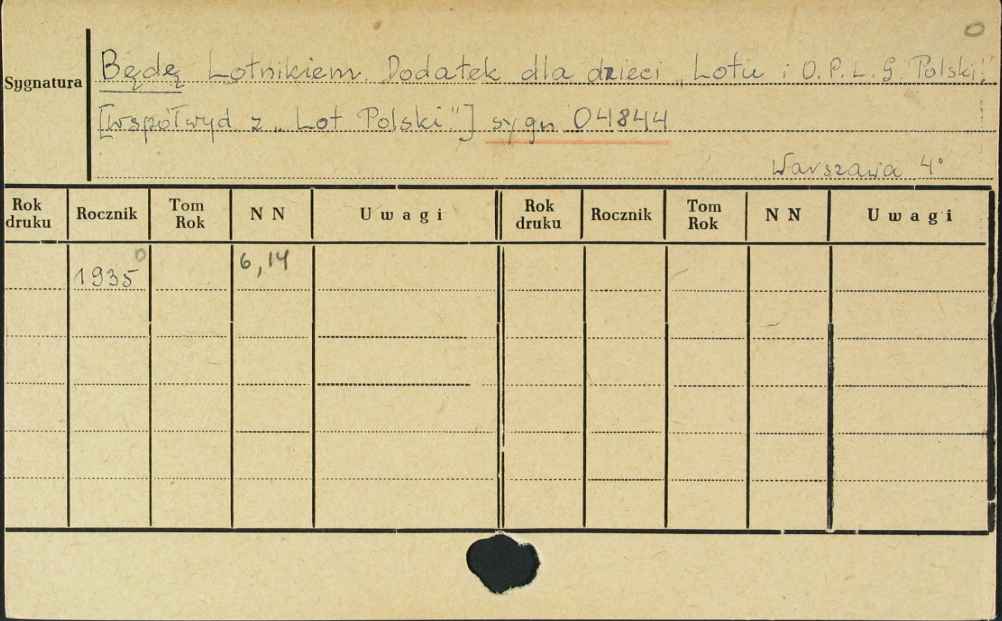 0
Sygnatura
Będę Lotnikiem. Dodatek dla dzieci „Lotu i O.P.L.G. Polski."
[współwyd z „Lot Polski"] sygn 04844
Warszawa 4°
Rok druku Rocznik Tom Rok NN Uwagi Rok druku Rocznik Tom Rok NN Uwagi
1935 0 6,14